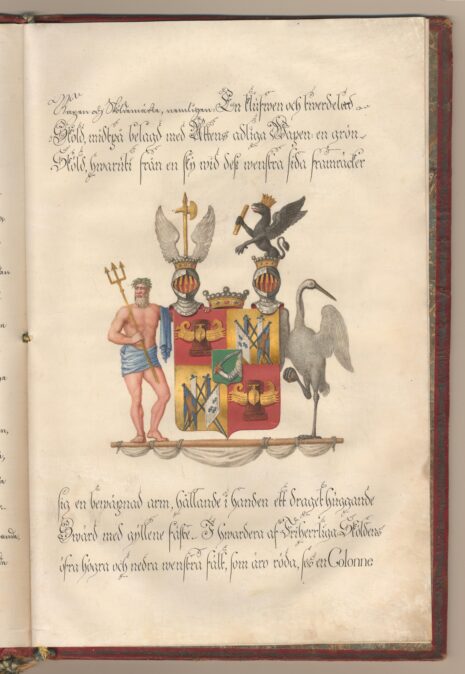 Wapen och Sköldemärke, nemligen: En klufwen och twerdelad
Sköld, midtpå belagd med Ättens adliga Wapen en grön
Sköld, hwaruti från en sky wid deß wenstra sida framräcker
sig en bewäpnad arm, hållande i handen ett draget huggande
Swärd med gyllene fäste. I hwardera af Friherrliga Sköldens
öfra högra och nedra wenstra fält, som äro röda, ses en Colonne